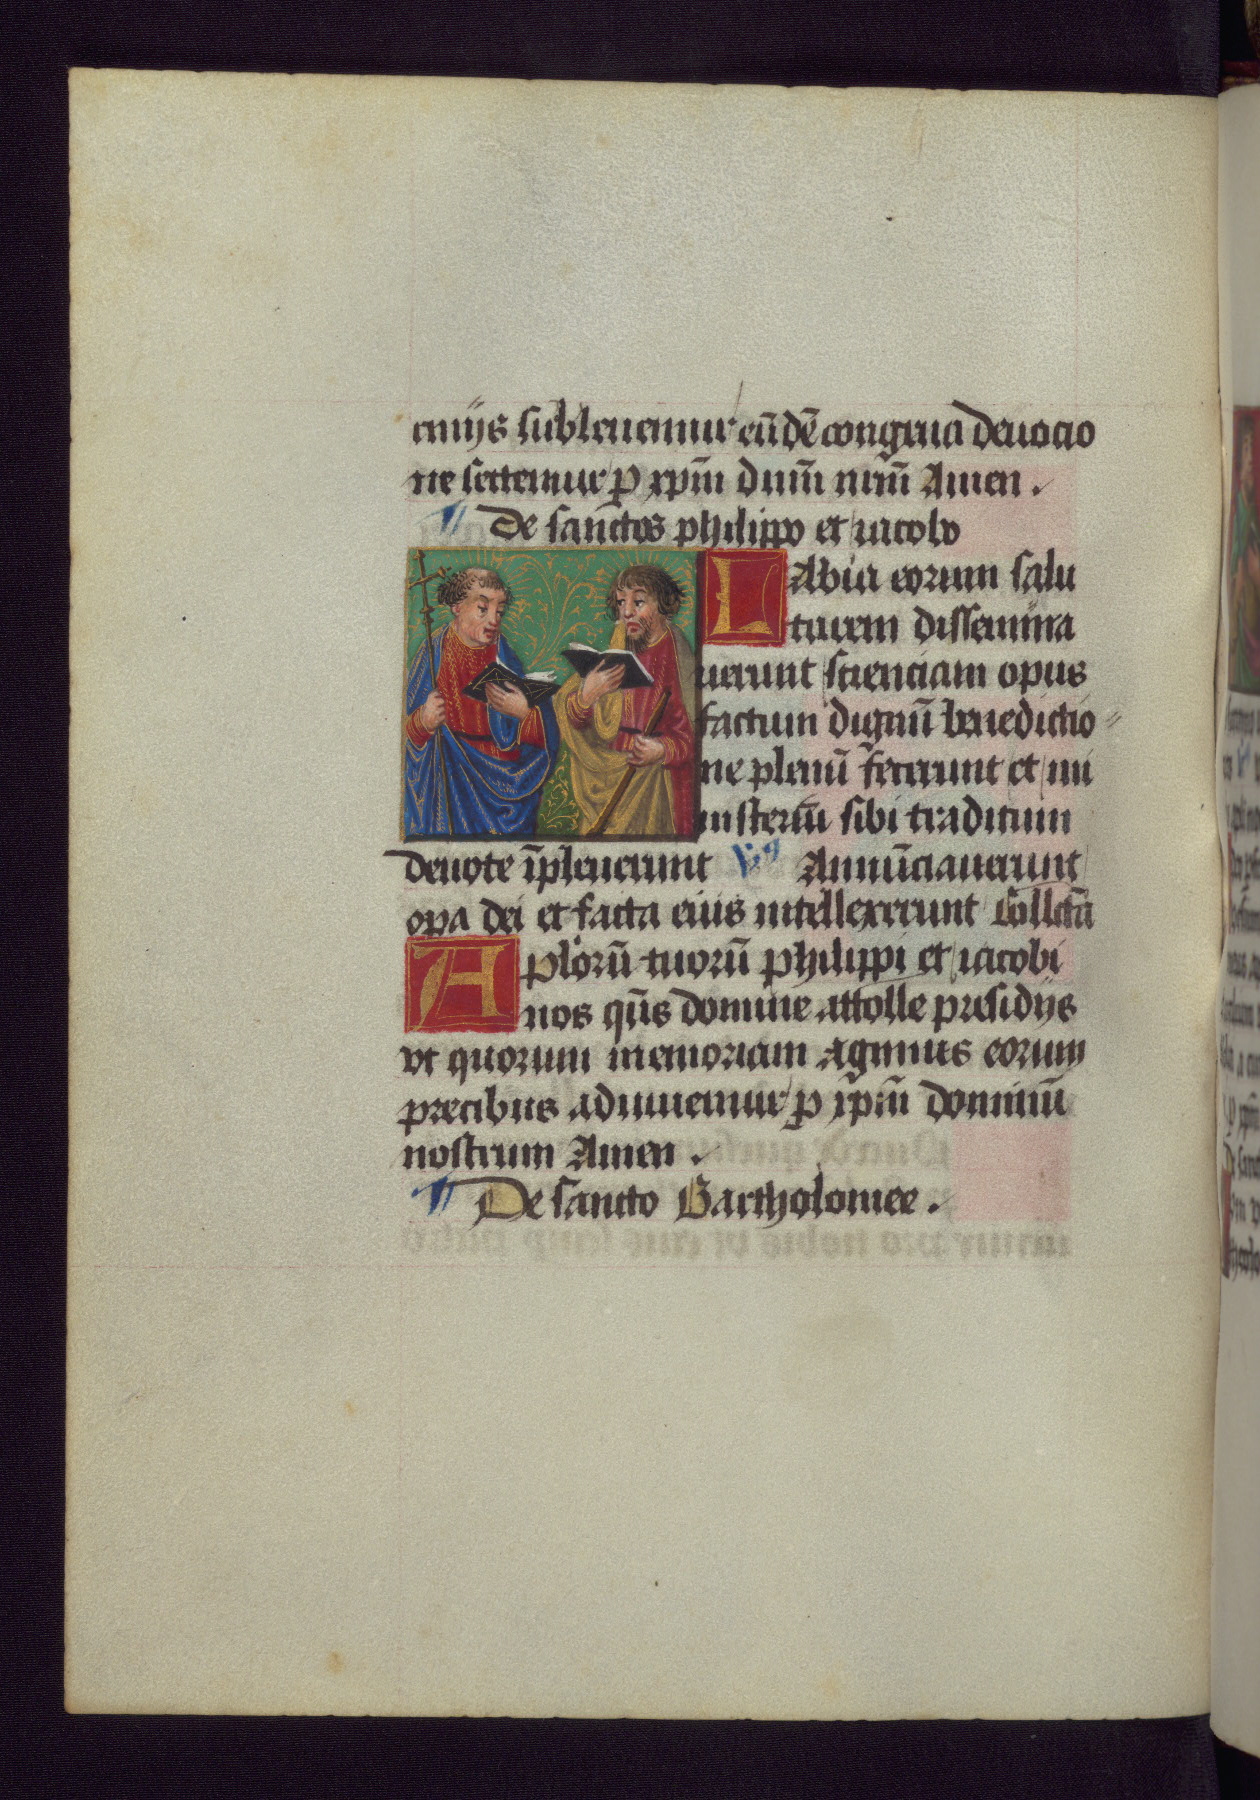 emijs subleuemur eūdē congrua deuocio
ne sectemur p xpm̄ dnm̄ nrm̄ Amen .
De sanctos philippo et iacobo
LAbia eorum salu
tarem dissemina
uerunt scienciam opus
factum dignū benedictio
ne plenū fecerunt et mi
nisteriū sibi traditum
deuote īpleuerunt Vs Annūciauerunt
opa dei et facta eius intellexerunt Collcta
Aplorū tuorū philippi et iacobi
nos qs̄ domine attolle presidijs
vt quorum memoriam agimus eorum
precibus adiuuemur p xpm̄ dominū
nostrum Amen .
De sancto Bartholomee .